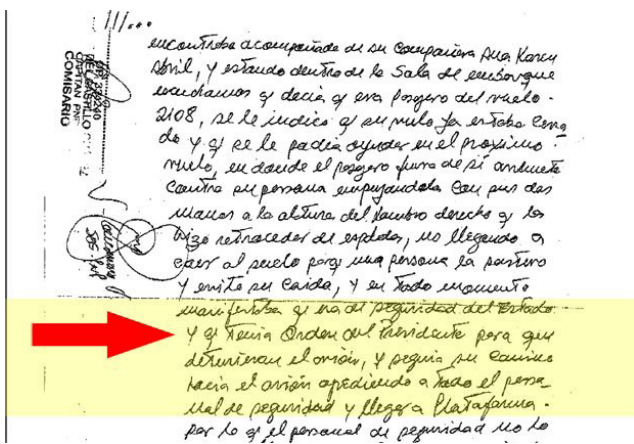 ///...
encontraba acompañada de su Compañera Ana Karen
Abril, y estando dentro de la Sala de embarque
q decia q era pasajero del vuelo -
2108, se le indicó q su vuelo ya estaba Cerra
do y q se le podia ayudar en el proximo
vuelo, en donde el pasajero fuera de sí arremete
Contra su persona empujandola Con sus dos
manos a la altura del hombro derecho q la
hizo retroceder de espaldas, no llegando a
caer al suelo porq una persona la sostuvo
y evitó su Caida, y en todo momento
manifestaba q era de seguridad del Estado
y q tenia Orden del Presidente para que
detuvieran el avión, y seguia su Camino
hacia el avión agrediendo a todo el perso
nal de seguridad y llegar a Plataforma.
por lo q el personal de seguridad no lo
OIP. 339240
DEL CASTILLO
CAPITAN PNP
COMISARIO